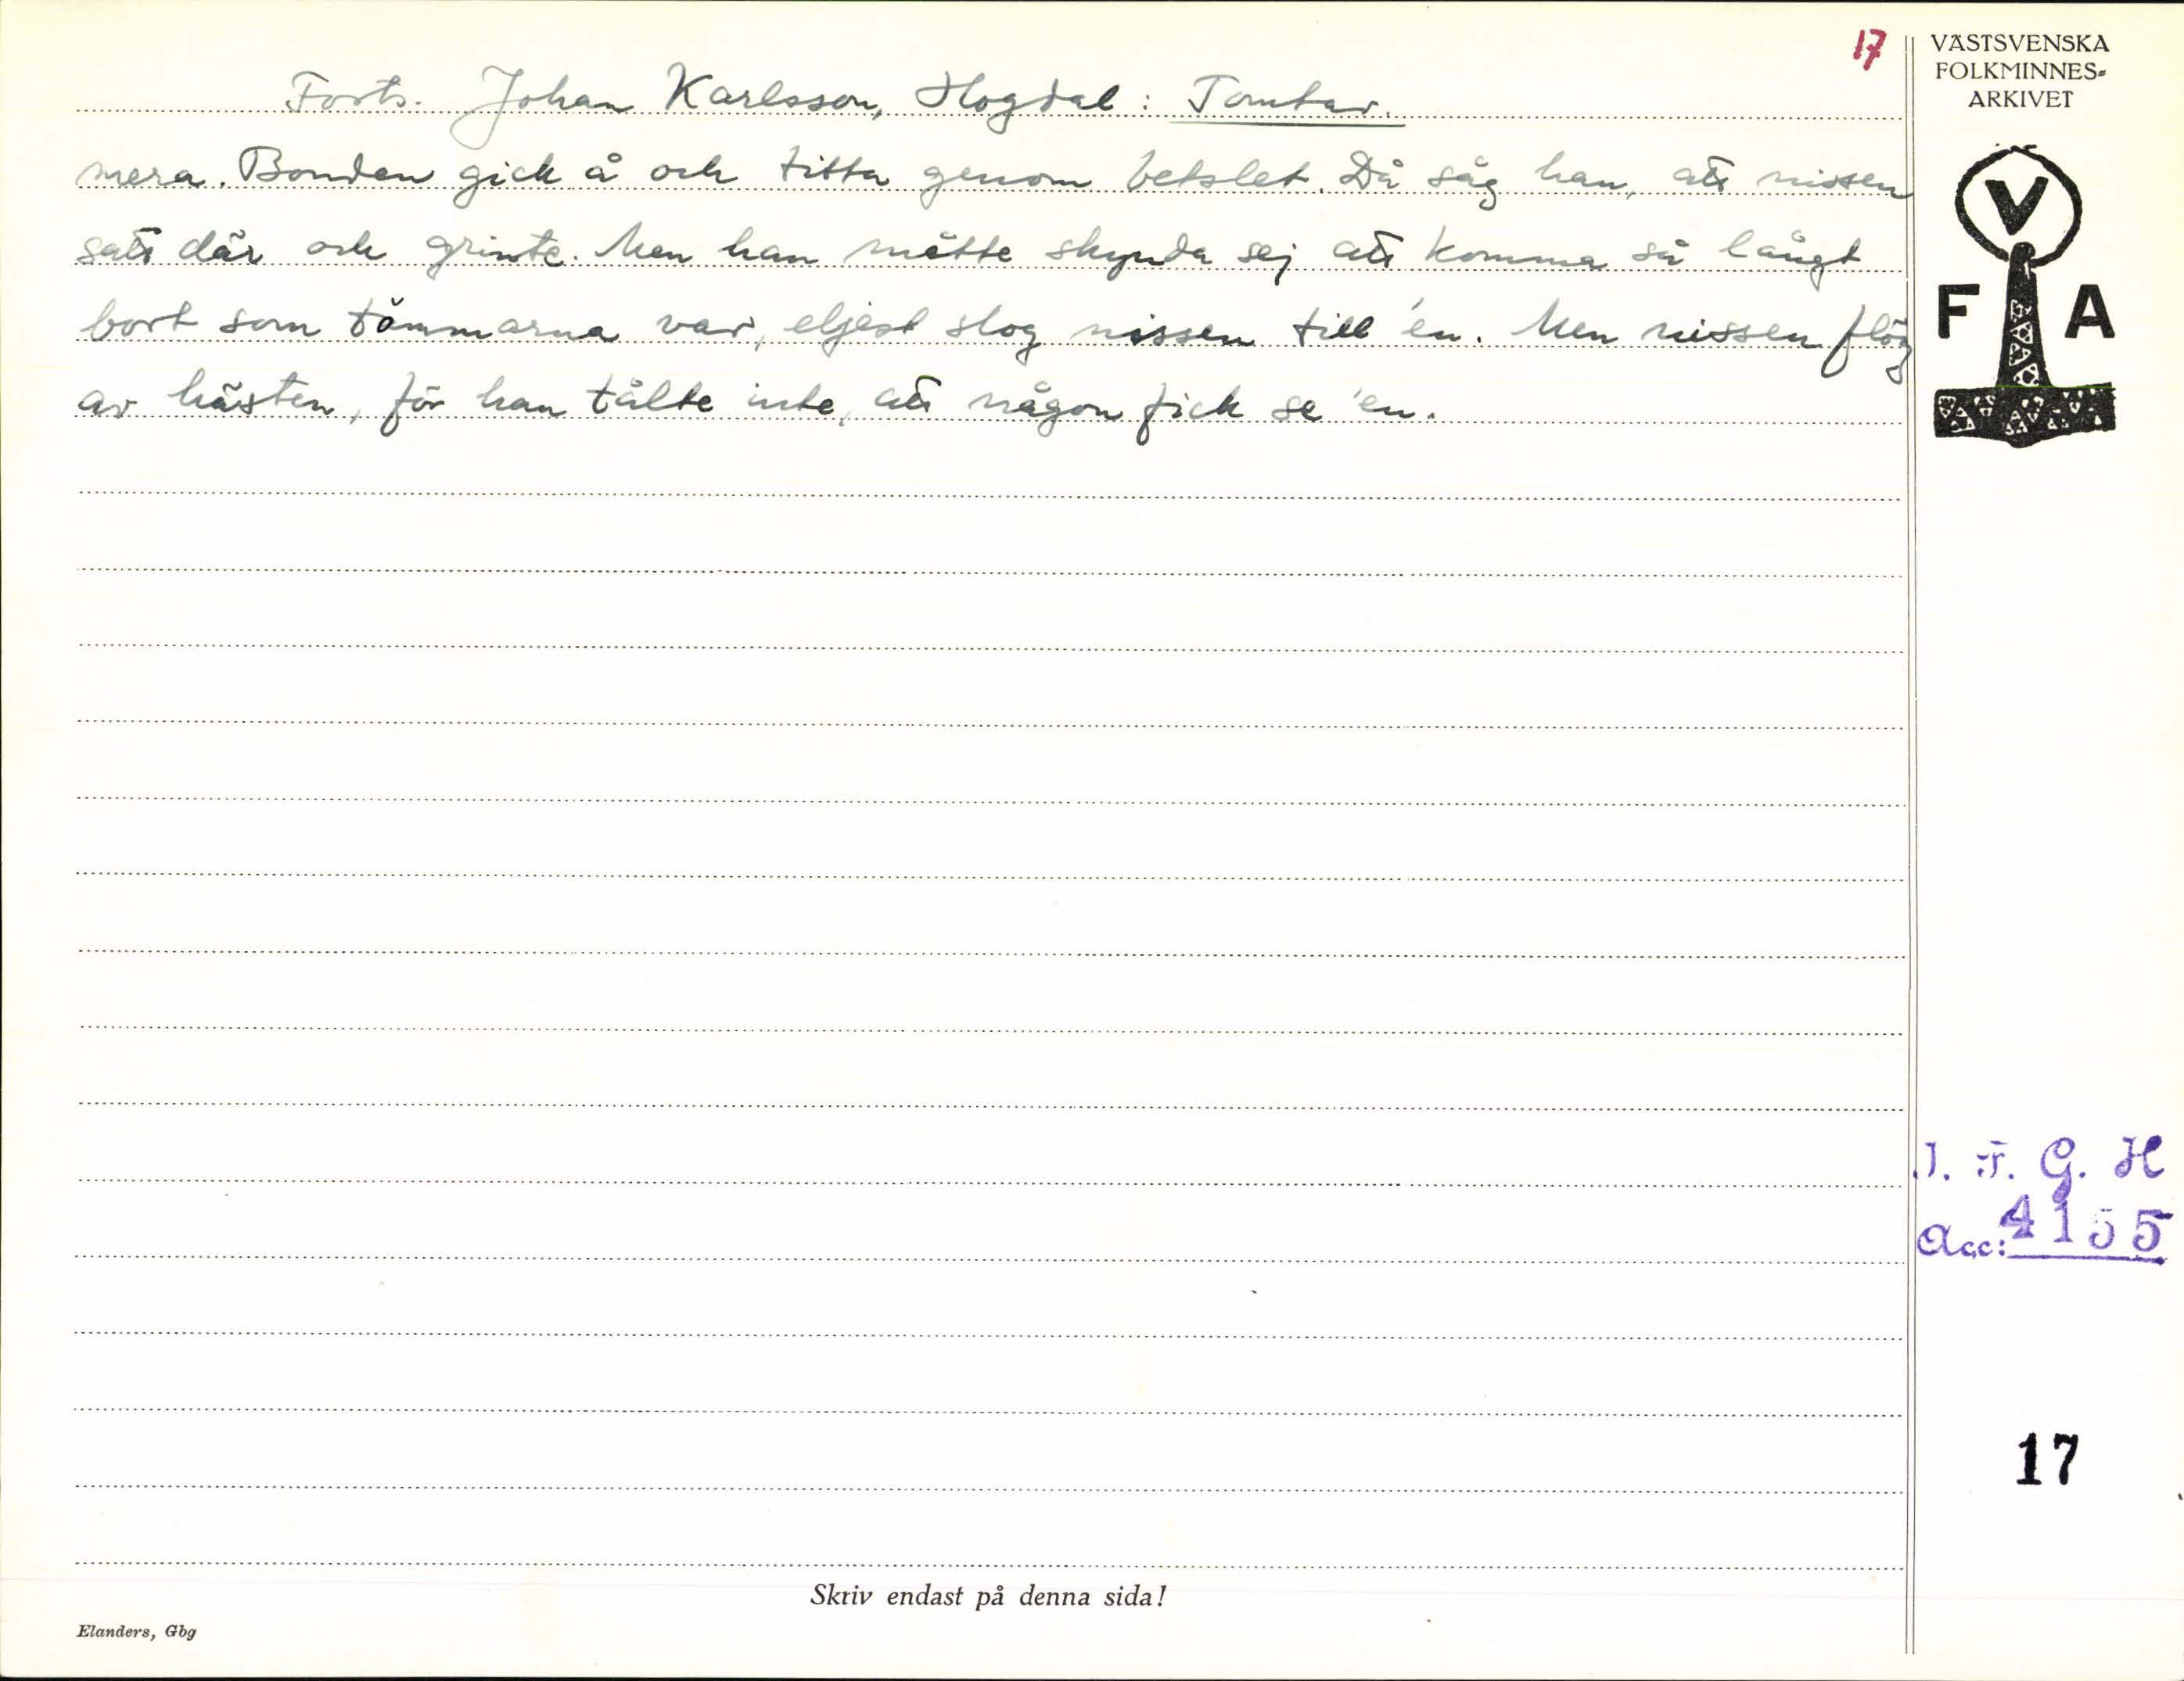 17
VÄSTSVENSKA
FOLKMINNES-
ARKIVET
Forts. Johan Karlsson, Hogdal: Tomtar.
mera. Bonden gick å och titta genom betslet. Då såg han, att nissen
satt där och grinte. Men han måtte skynda sej att komma så långt
bort som tömmarna var, eljest slog nissen till 'en. Men nissen flög
av hästen, för han tålte inte, att någon fick se 'en.
V
F A
I. F. G. H
Acc: 4155
17
Skriv endast på denna sida!
Elanders, Gbg